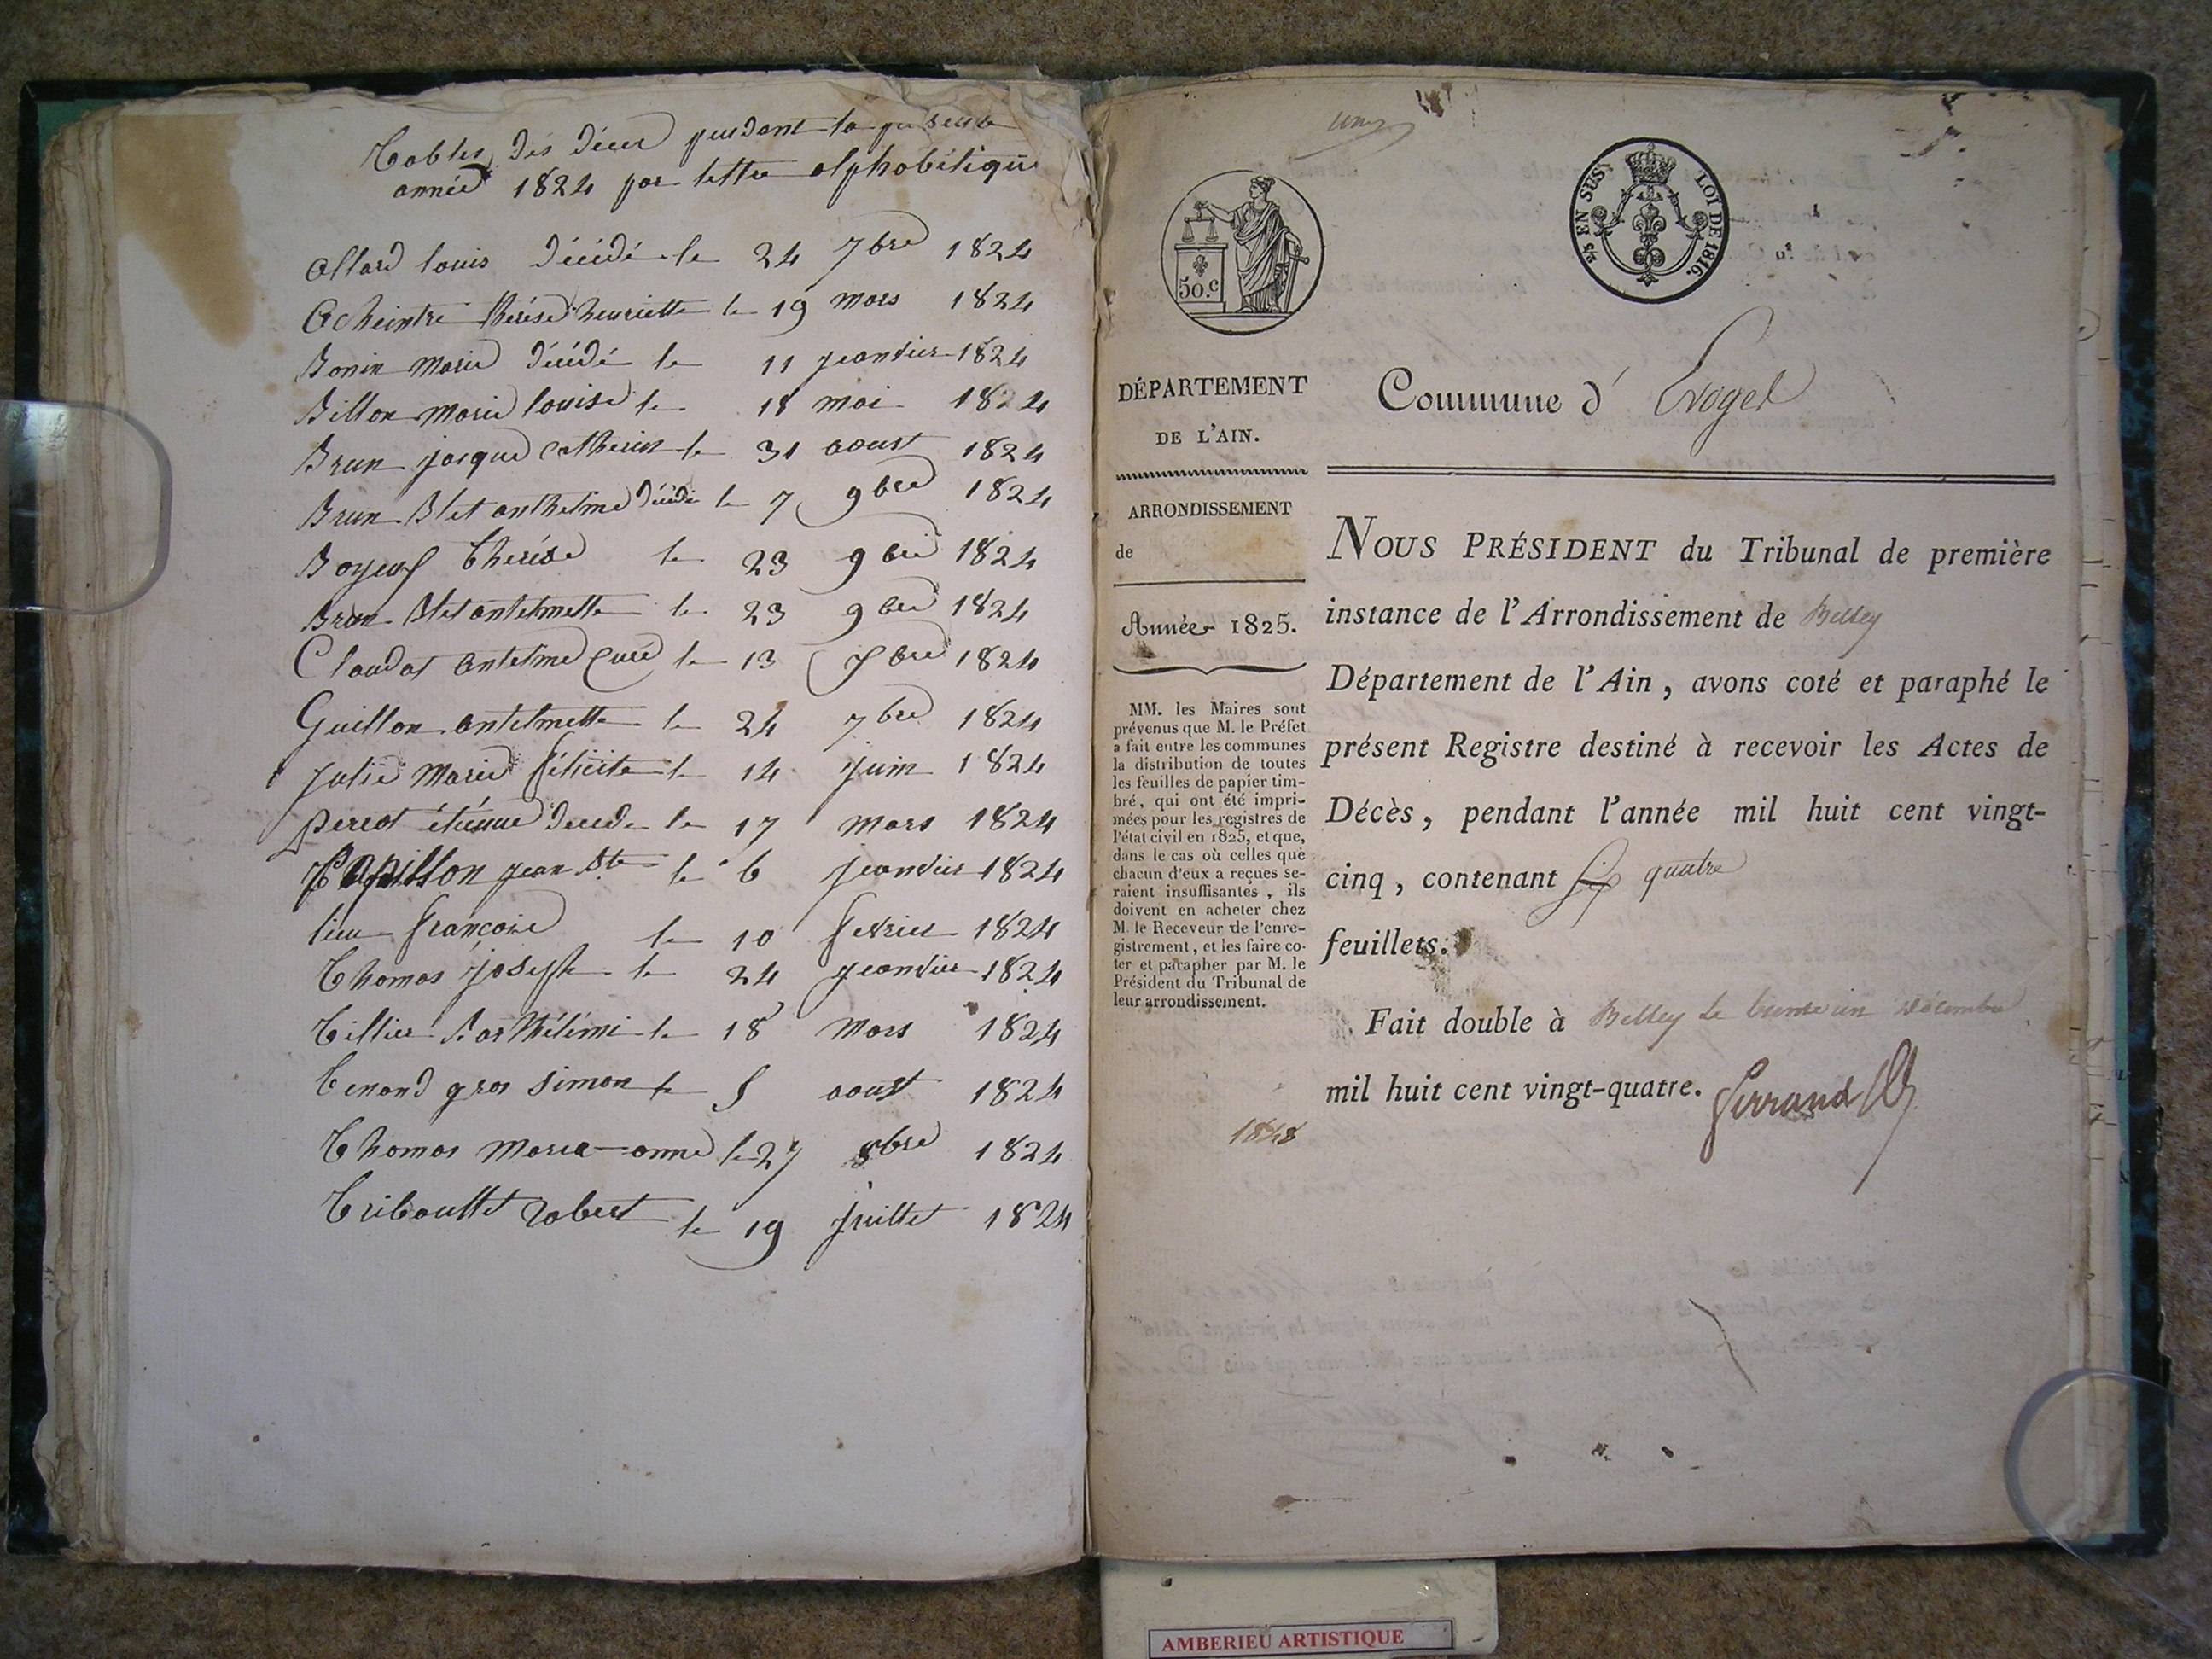 Tables des décès pendant la présente
année 1824 par lettre alphabétique
allard louis décédé le 24 7bre 1824
Acheintre thérèse henriette le 19 mars 1824
Bonin marie décédé le 11 jeanvier 1824
Billon marie louise le 18 mai 1824
Brun jacque catherin le 31 aoust 1824
Brun Blet anthelme décédé le 7 9bre 1824
Boyeux therése le 23 9bre 1824
Brun Blet antelmette le 23 9bre 1824
Claudat antelme curé le 13 7bre 1824
Guillon antelmette le 24 7bre 1824
Julie Marie félicité le 14 juin 1824
perrot étienne décédé le 17 mars 1824
jean Bte le 6 jeanvier 1824
françoise le 10 fevrier 1824
Thomas joseph le 24 jeanvier 1824
Tillier Barthélémi le 18 mars 1824
Tenand gros simon le 5 aoust 1824
Thomas Marie-anne le 27 8bre 1824
Triboullet robert le 19 juillet 1824
un
2/5 EN SUS. LOI DE 1816.
50.c
DÉPARTEMENT
DE L'AIN.
Commune d' Evoges
ARRONDISSEMENT
de
Année 1825.
MM. les Maires sont
prévenus que M. le Préfet
a fait entre les communes
la distribution de toutes
les feuilles de papier tim-
bré, qui ont été impri-
mées pour les registres de
l'état civil en 1825, et que,
dans le cas où celles que
chacun d'eux a reçues se-
raient insuffisantes, ils
doivent en acheter chez
M. le Receveur de l'enre-
gistrement, et les faire co-
ter et parapher par M. le
Président du Tribunal de
leur arrondissement.
NOUS PRÉSIDENT du Tribunal de première
instance de l'Arrondissement de Belley
Département de l'Ain, avons coté et paraphé le
présent Registre destiné à recevoir les Actes de
Décès, pendant l'année mil huit cent vingt-
cinq, contenant quatre
feuillets.
Fait double à Belley le trente un décembre
mil huit cent vingt-quatre.
1848
AMBERIEU ARTISTIQUE